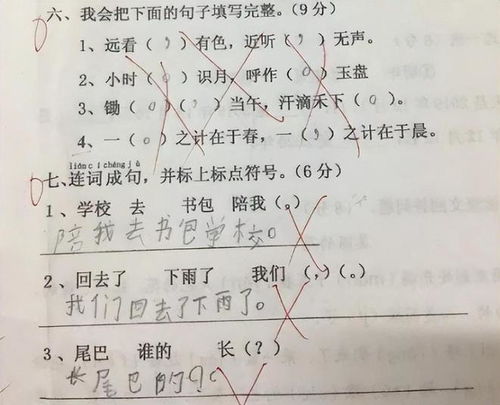 六、我会把下面的句子填写完整。(9分)
1、远看(,)有色，近听(,)无声。
2、小时(。)识月，呼作(。)玉盘
3、锄(。)(,)当午，汗滴禾下(。)。
4、一(。)之计在于春，一(,)之计在于晨。
lián c í chéng j ù
七、连词成句，并标上标点符号。(6分)
1、学校 去 书包 陪我(。)
陪我去书包学校。
2、回去了 下雨了 我们(，)(。)
我们回去了下雨了。
3、尾巴 谁的 长(？)
长尾巴的?